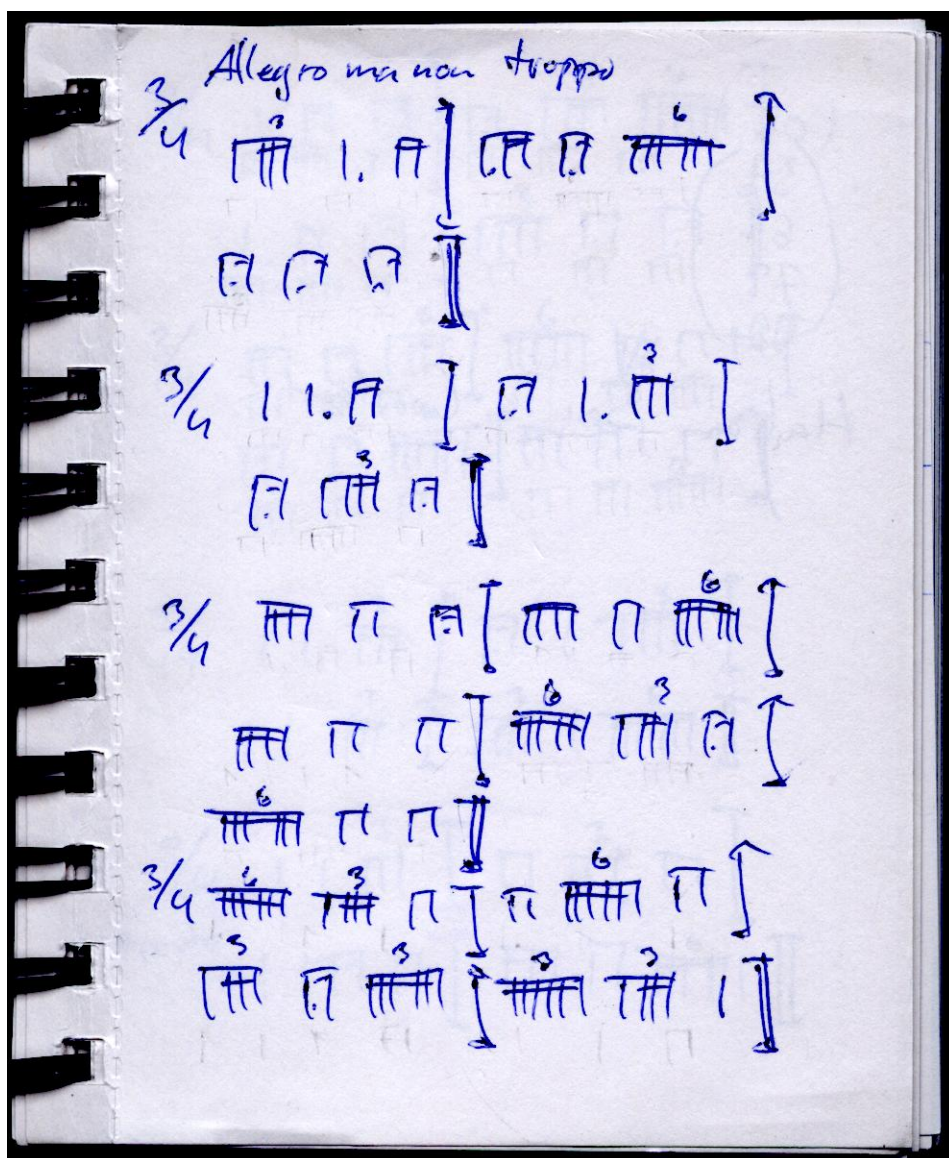 Allegro ma non troppo
3/4 3 6
3/4 3
3
3/4 6
6 3
6
3/4 6 3 6
3 3 3 3